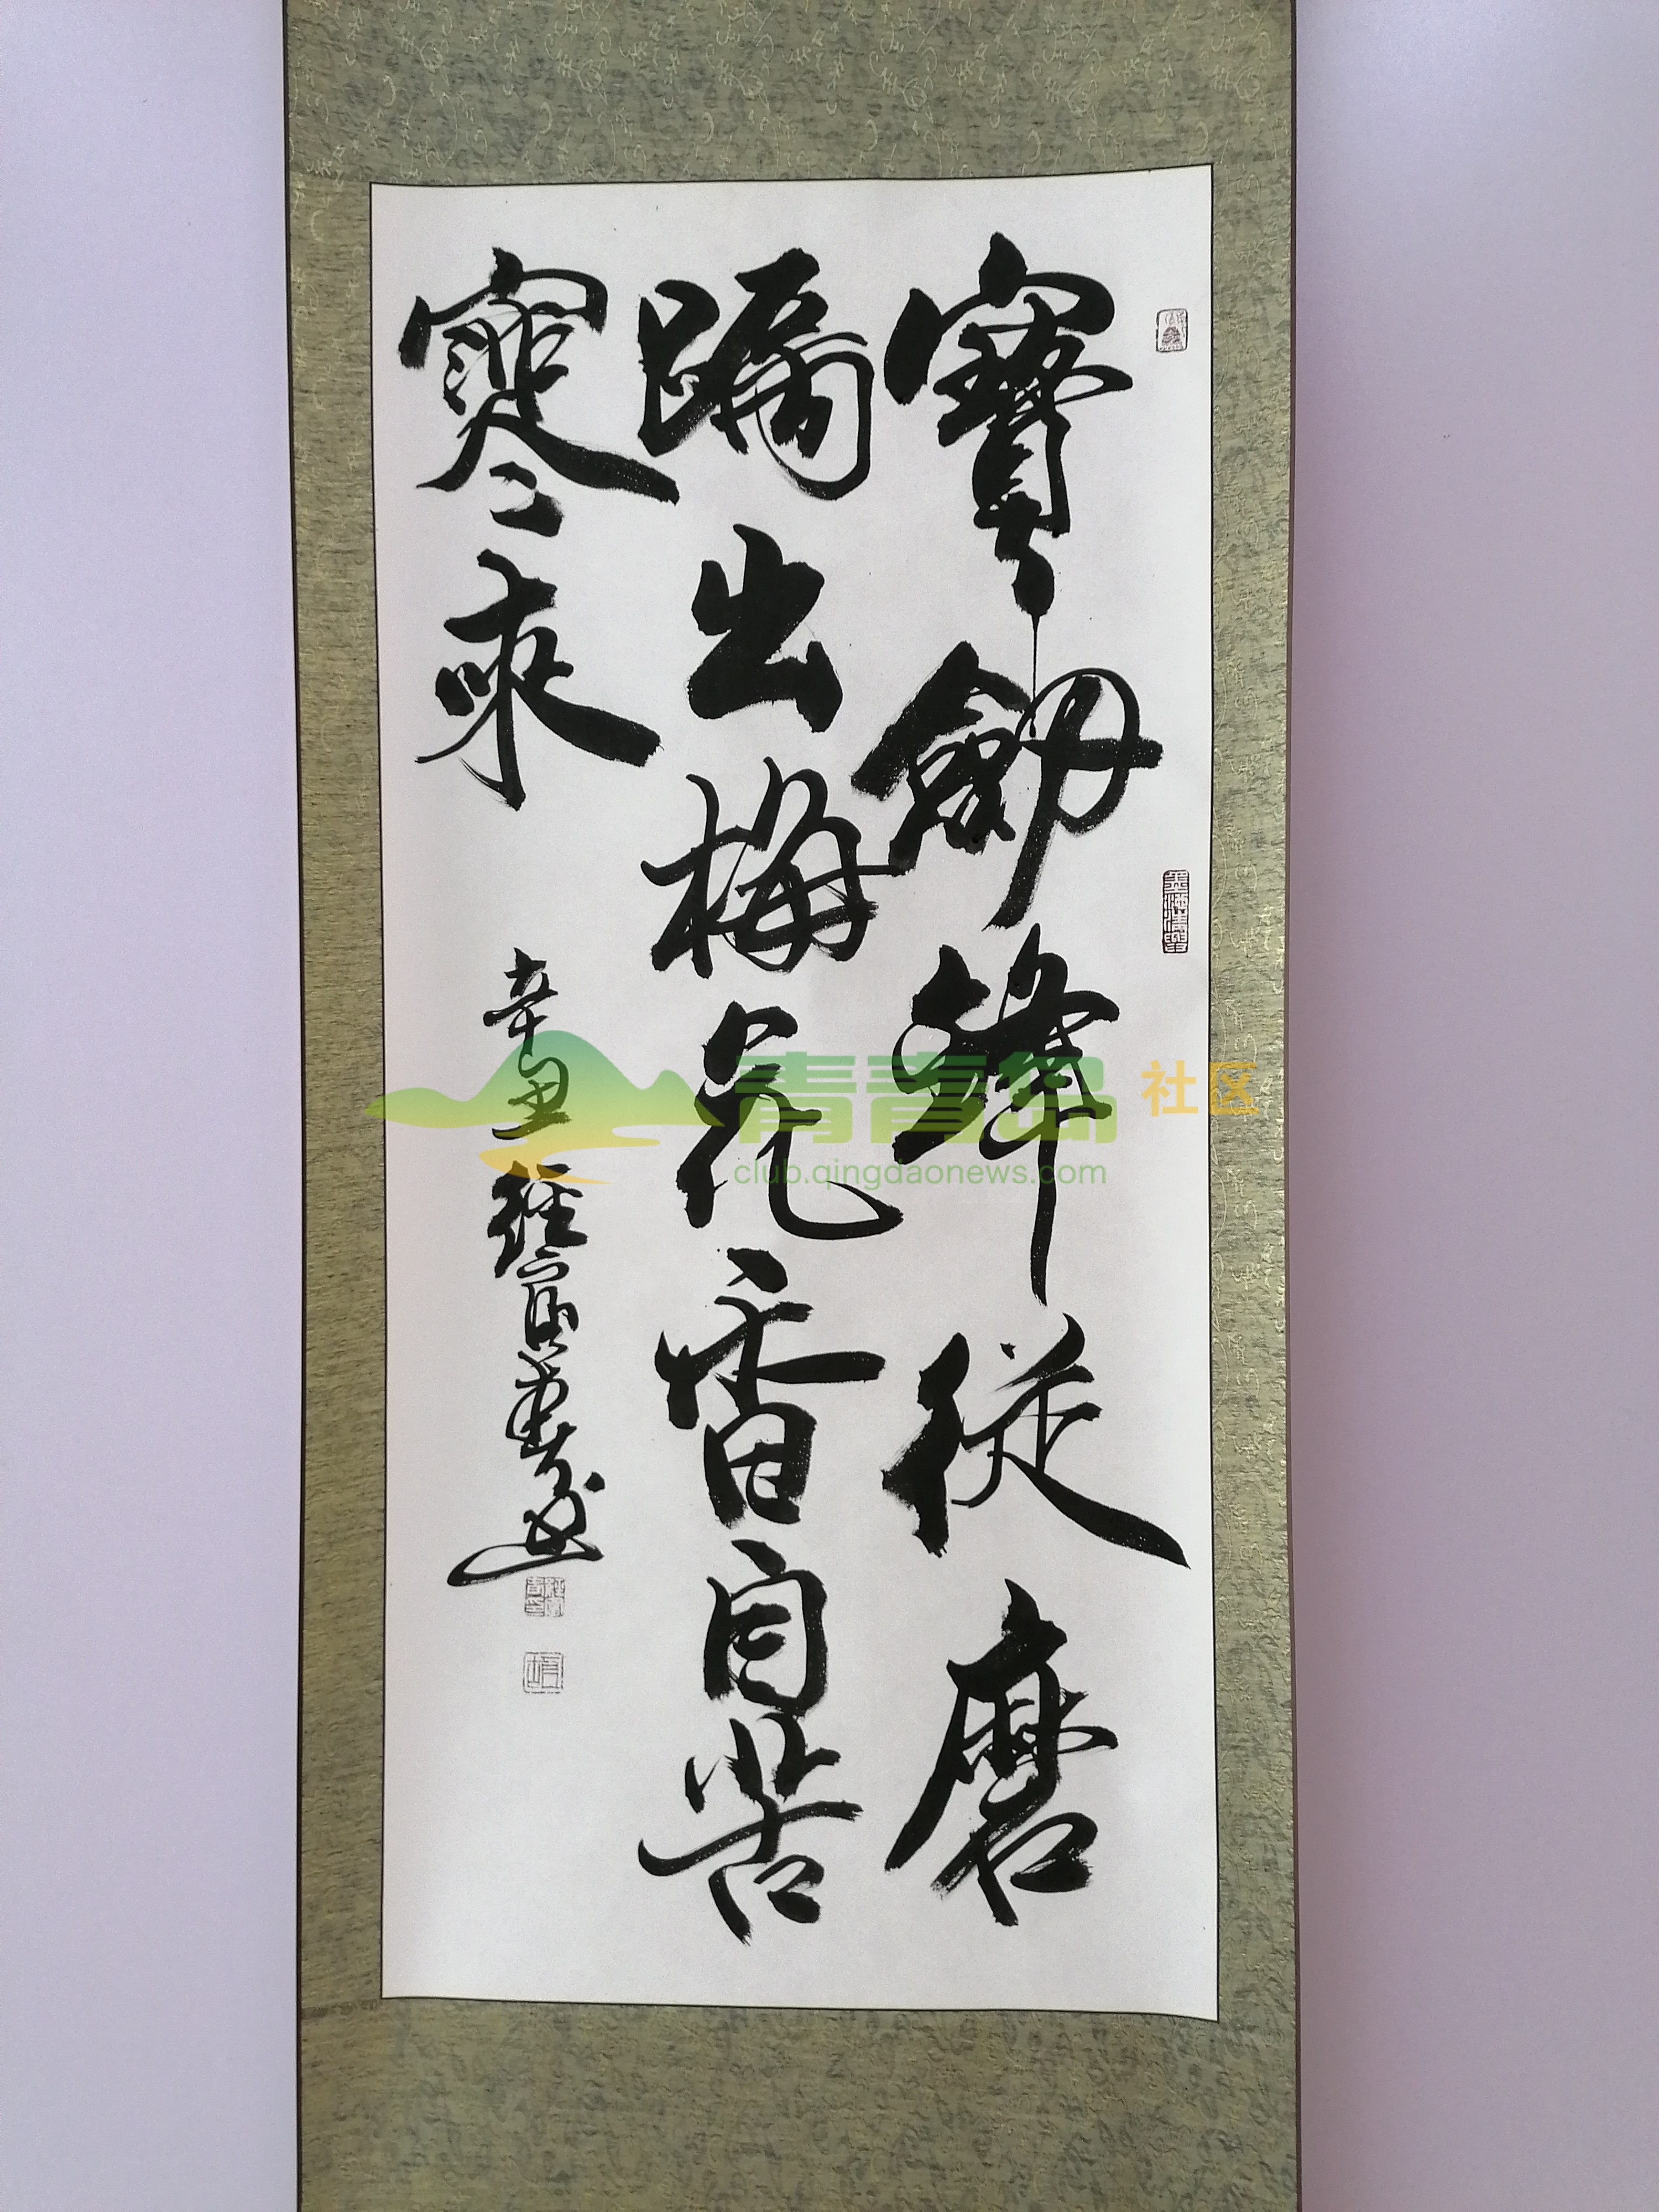 寶劔鋒從磨
礪出梅花香自苦
寒來
辛丑
青青岛社区
club.qingdaonews.com